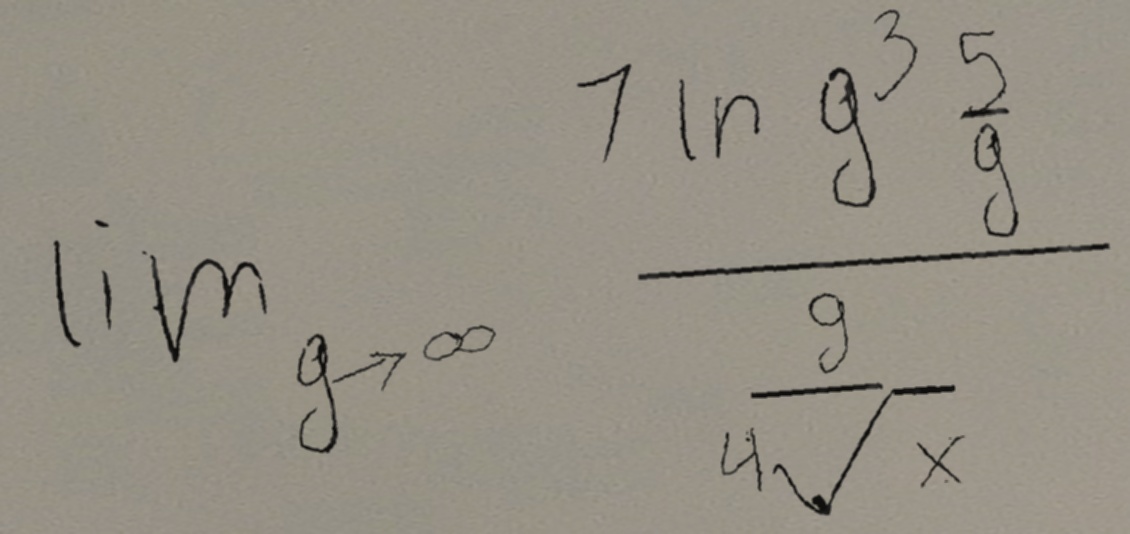 \lim_{g \to \infty} \frac{7 \ln g^3 \frac{5}{g}}{\frac{g}{4\sqrt{x}}}